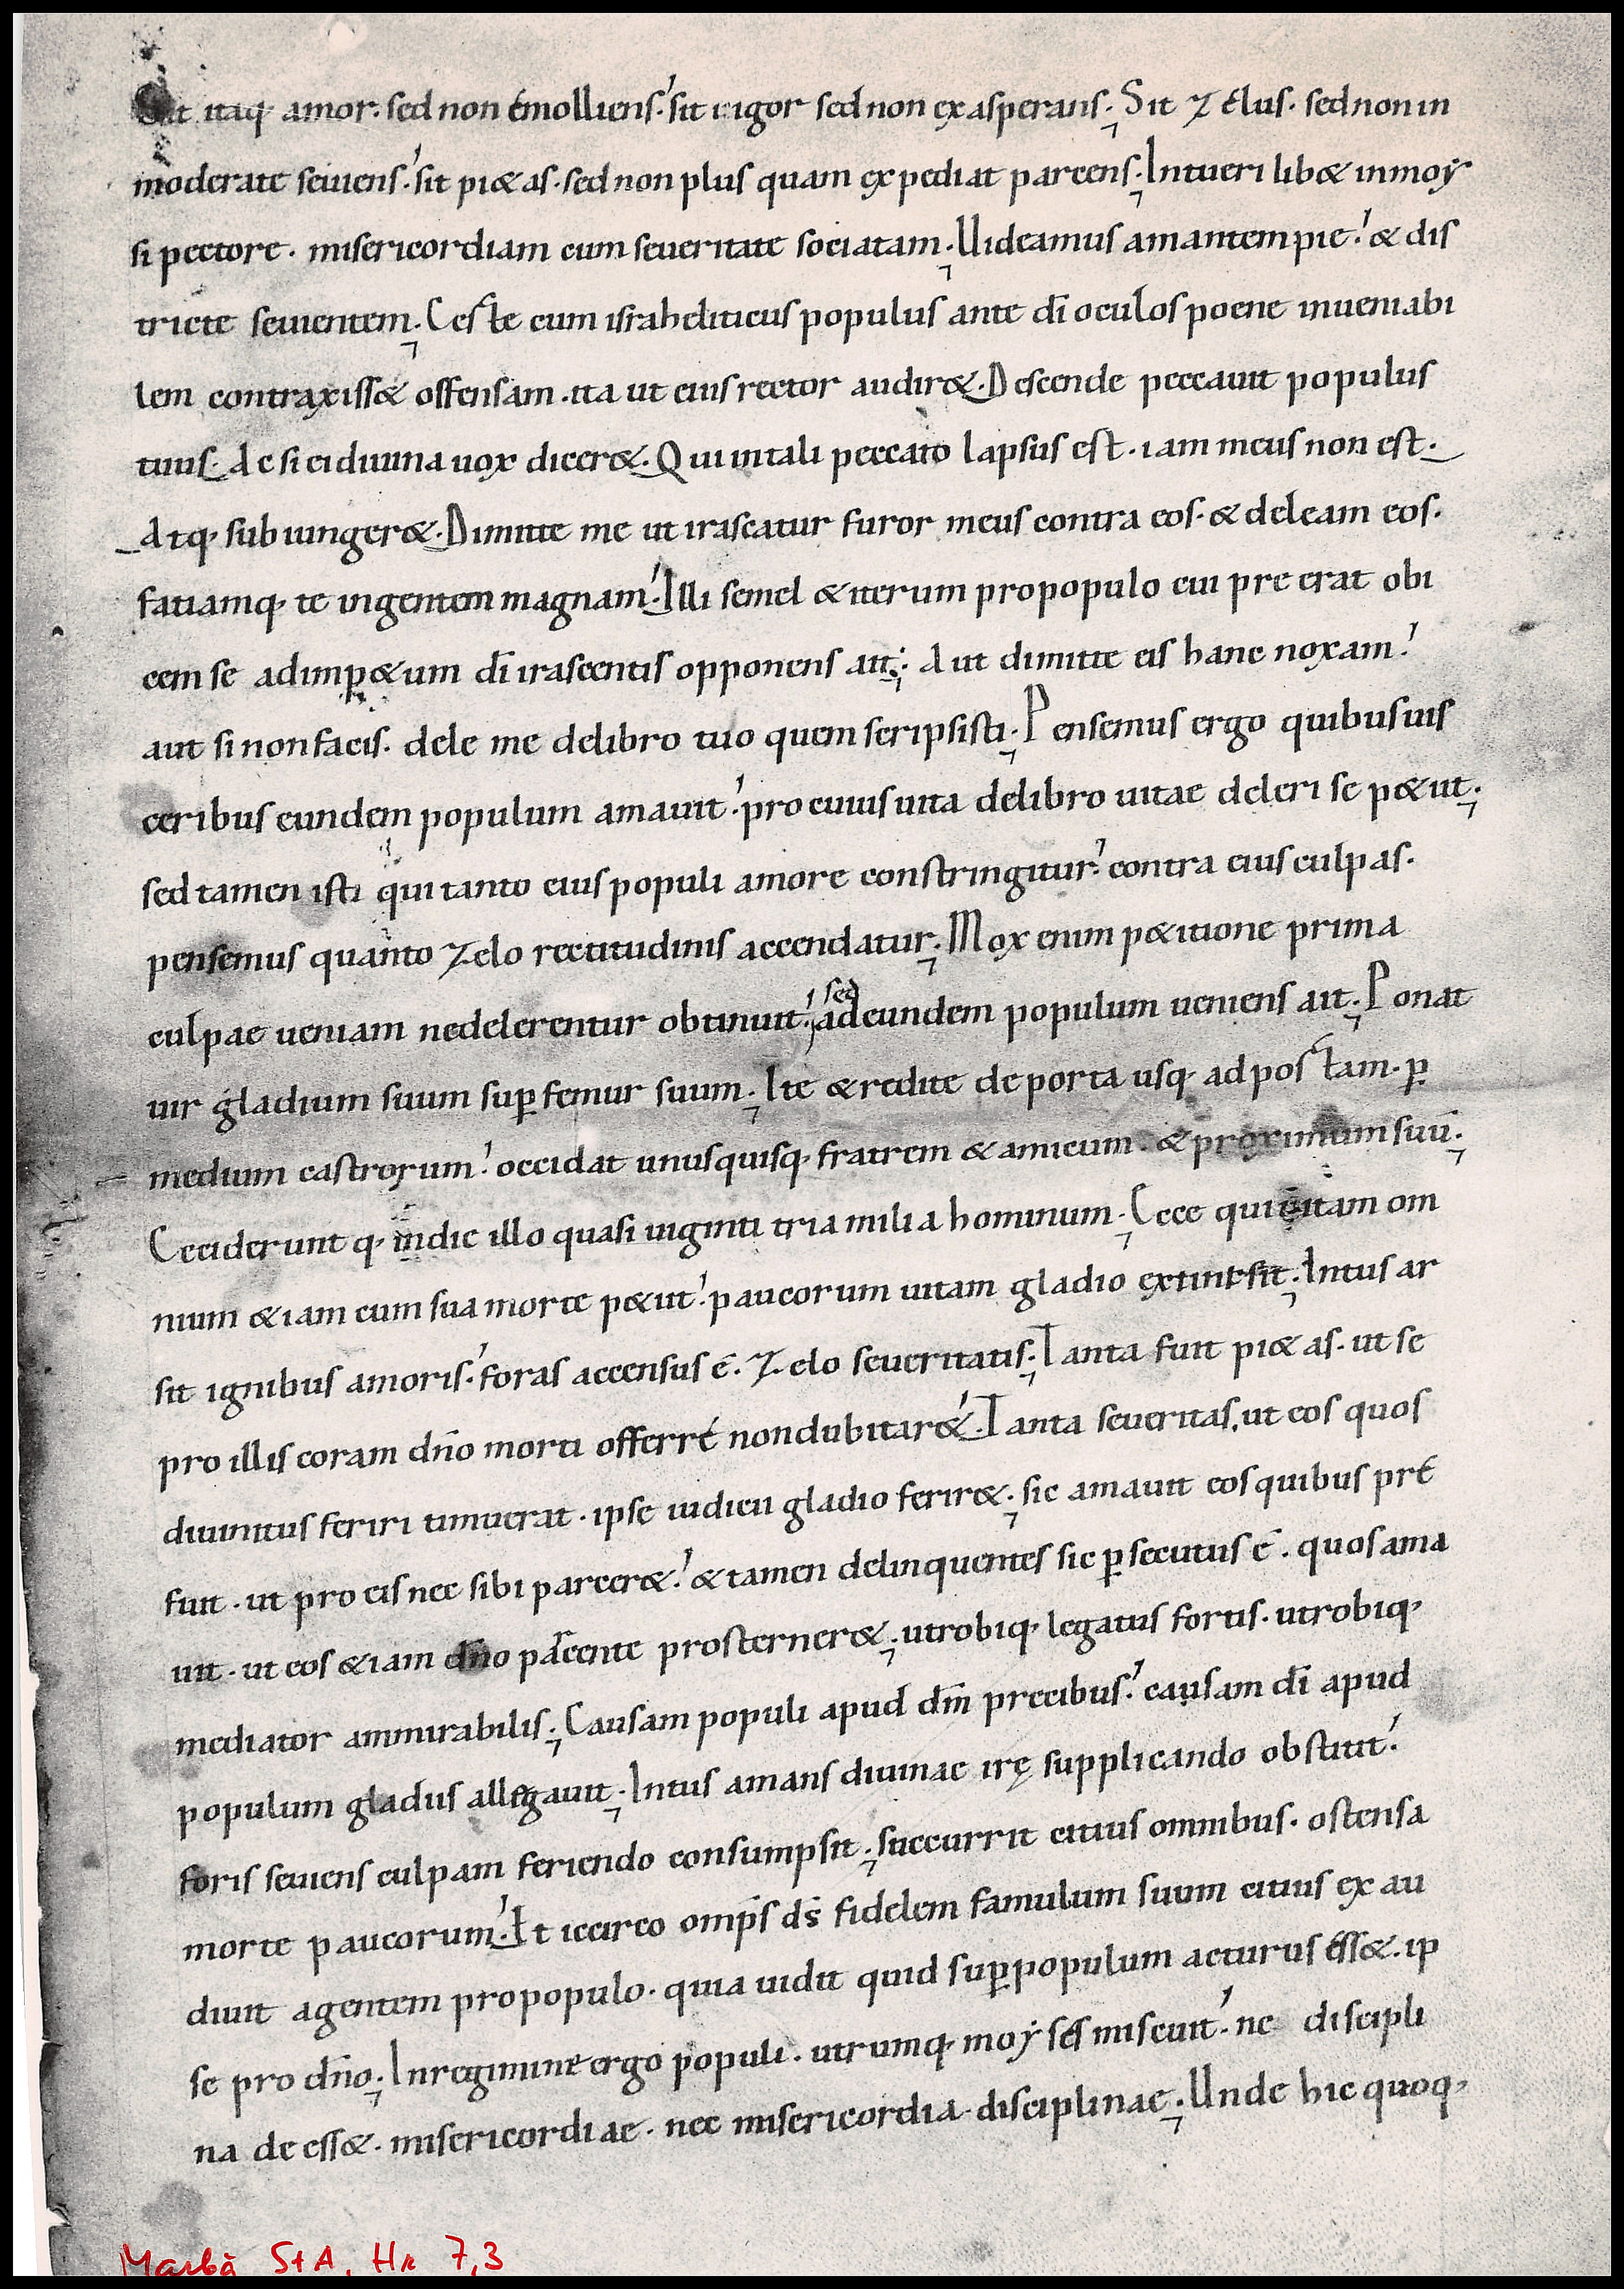 Sit itaq· amor· sed non emolliens· sit uigor sed non exasperans· Sit zelus· sed non in
moderate seuiens· sit pi&as· sed non plus quam expediat parcens· Intueri lib& in moẏ
si pectore· misericordiam cum seueritate sociatam· Uideamus amantem pie· & dis
tricte seuientem· Certe cum israheliticus populus ante dī oculos poene inueniabi
lem contraxiss& offensam· ita ut eius rector audir&· Descende peccauit populus
tuus· Ac si ei diuina uox dicer&· Qui in tali peccato lapsus est· iam meus non est·
Atq· subiunger&· Dimitte me ut irascatur furor meus contra eos· & deleam eos·
fatiamq· te in gentem magnam· Illi semel & iterum pro populo cui pre erat obi
cem se ad imp&um dī irascentis opponens ait· Aut dimitte eis hanc noxam·
aut si non facis· dele me de libro tuo quem scripsisti· Pensemus ergo quibus uis
ceribus eundem populum amauit· pro cuius uita de libro uitae deleri se p&iit·
sed tamen isti qui tanto eius populi amore constringitur· contra eius culpas·
pensemus quanto zelo rectitudinis accendatur· Mox enim p&itione prima
culpae ueniam ne delerentur obtinuit· sed ad eundem populum ueniens ait· Ponat
uir gladium suum sup femur suum· Ite & redite de porta usq· ad postam· p
medium castrorum· occidat unusquisq· fratrem & amicum· & proximum suū·
Cecideruntq· in die illo quasi uiginti tria milia hominum· Ecce qui uitam om
nium &iam cum sua morte p&iit· paucorum uitam gladio extinxit· Intus ar
sit ignibus amoris· foras accensus ē· zelo seueritatis· Tanta fuit pi&as· ut se
pro illis coram dn̄o morti offerre non dubitar&· Tanta seueritas· ut eos quos
diuinitus feriri timuerat· ipse iudicii gladio ferir&· sic amauit eos quibus pre
fuit· ut pro eis nec sibi parcer&· & tamen delinquentes sic psecutus ē· quos ama
uit· ut eos &iam dn̄o parcente prosterner&· utrobiq· legatus fortis· utrobiq·
mediator ammirabilis· Causam populi apud dm̄ precibus· causam dī apud
populum gladiis allegauit· Intus amans diuinae irę supplicando obstitit·
foris seuiens culpam feriendo consumpsit· succurrit citius omnibus· ostensa
morte paucorum· Et iccirco omp̄s ds̄ fidelem famulum suum citius exau
diuit agentem pro populo· quia uidit quid sup populum acturus ess&· ip
se pro dn̄o· In regimine ergo populi· utrumq· moẏses miscuit· ne discipli
na deess&· misericordiae· nec misericordia disciplinae· Unde hic quoq·
Marbg StA, Hr 7,3